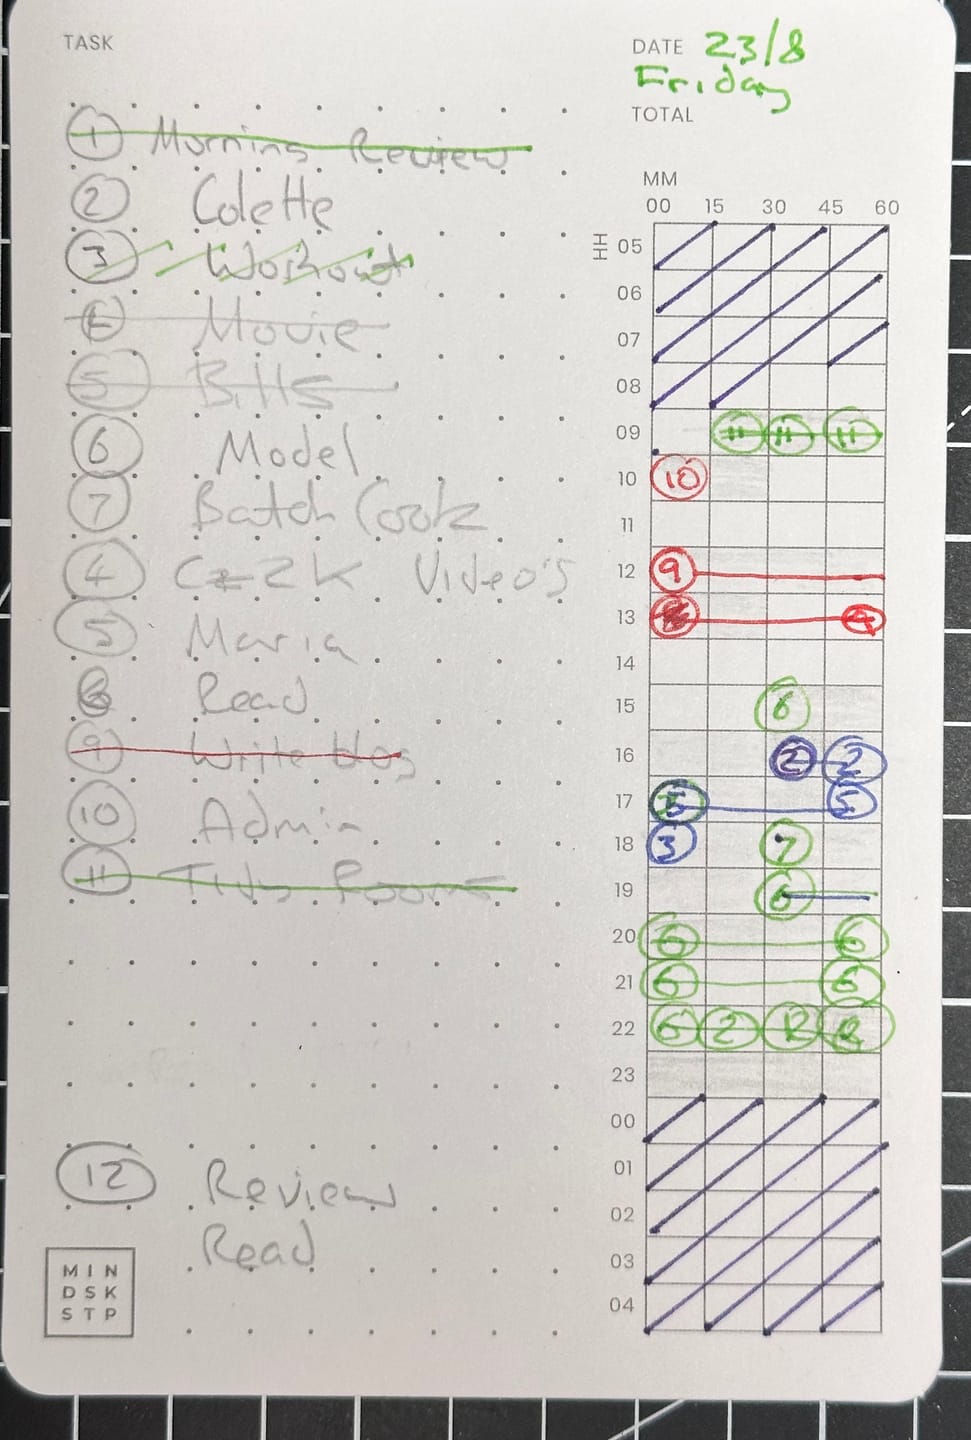 TASK
DATE 23/8
Friday
TOTAL
1 Morning Review
2 Colette
3 Workout
Movie
5 Bills
6 Model
7 Batch Cook
4 C2K Video's
5 Maria
8 Read
9 Write blog
10 Admin
11 Tidy Room
12 Review
Read
MIN
DSK
STP
MM
00 15 30 45 60
HH 05
06
07
08
09 11 11 11
10 10
11
12 9
13
14
15 6
16 2 2
17 5
18 3 7
19 6
20 6 6
21 6 6
22 6 2
23
00
01
02
03
04